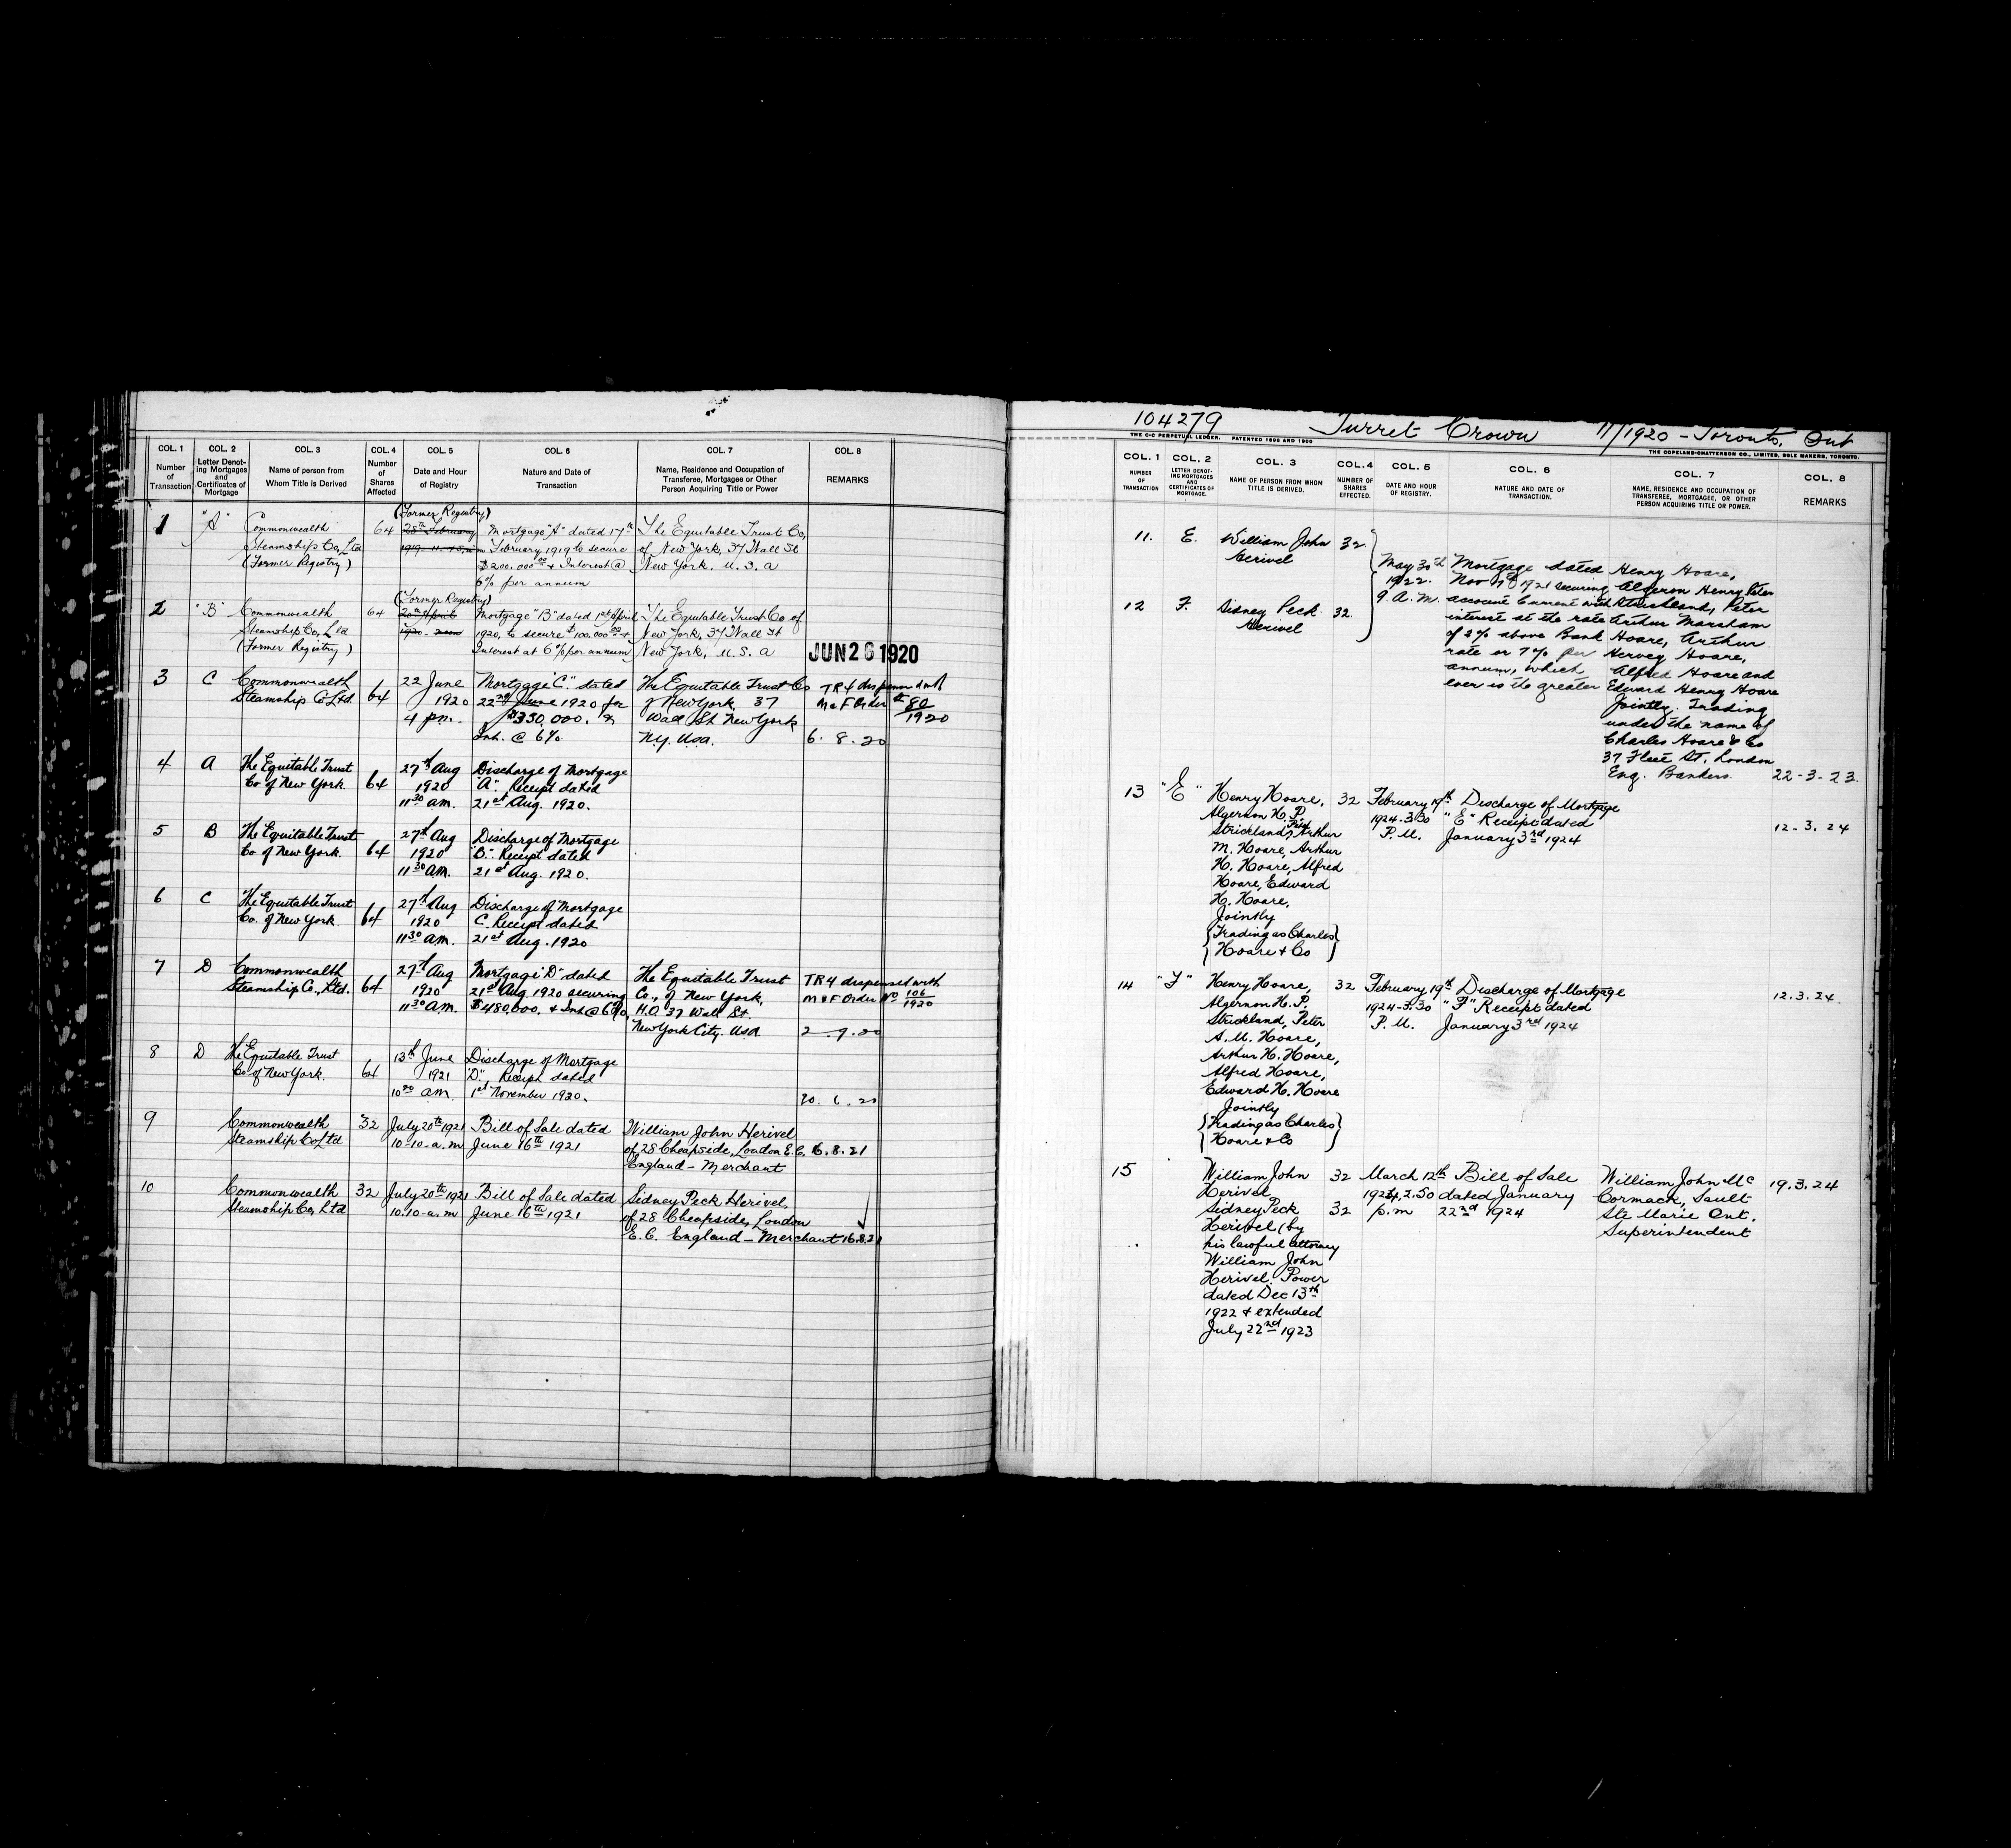 COL. 1 COL. 2 COL. 3 COL. 4 COL. 5 COL. 6 COL. 7 COL. 8
Number of Transaction
Letter Denoting Mortgages and Certificates of Mortgage
Name of person from Whom Title is Derived
Number of Shares Affected
Date and Hour of Registry
Nature and Date of Transaction
Name, Residence and Occupation of Transferee, Mortgagee or Other Person Acquiring Title or Power
REMARKS
(Former Registry)
1 "A" Commonwealth 64 28th February Mortgage "A" dated 17th The Equitable Trust Co,
Steamship Co, Ltd 1919 February 1919 to secure of New York, 37 Wall St
(Former Registry) $200.000 00 & Interest @ New York, U.S.A
6% per annum
(Former Registry)
2 "B" Commonwealth 64 20th April Mortgage "B" dated 1st April The Equitable Trust Co of
Steamship Co, Ltd 1920. 1920, to secure $100.000 00 & New York, 37 Wall St
(Former Registry) Interest at 6% per annum New York, U.S.A JUN 26 1920
3 C Commonwealth 22 June Mortgage "C". dated The Equitable Trust Co TR4 dispensed with
Steamship Co Ltd. 64 1920 22nd June 1920 for of New York, 37 M & F Order 80
4 pm. $330,000. & Wall St New York 1920
Int. @ 6% N.Y. USA. 6. 8. 20
4 A The Equitable Trust 27th Aug Discharge of Mortgage
Co of New York. 64 1920 "A". Receipt dated
11 30 am. 21st Aug. 1920.
5 B The Equitable Trust 27th Aug Discharge of Mortgage
Co of New York. 64 1920 "B". Receipt dated
11 30 AM. 21st Aug. 1920.
6 C The Equitable Trust 27th Aug Discharge of Mortgage
Co. of New York 64 1920 C. Receipt dated
11 30 am. 21st Aug. 1920
7 D Commonwealth 27th Aug Mortgage "D" dated The Equitable Trust TR4 dispensed with
Steamship Co., Ltd. 64 1920 21st Aug 1920 securing Co., of New York, M & F Order No 106
11 30 AM. $480,000. & Int @ 6%, H.O. 37 Wall St. 1920
New York City. USA 2 _ 9. 20
8 D The Equitable Trust 13th June Discharge of Mortgage
Co of New York. 64 1921 "D". Receipt dated
10 20 am. 1st November 1920. 20. 6. 21
9 Commonwealth 32 July 20th 1921 Bill of Sale dated William John Herivel
Steamship Co Ltd 10.10-a.m June 16th 1921 of 28 Cheapside, London E.C. 16.8.21
England - Merchant
10 Commonwealth 32 July 20th 1921 Bill of Sale dated Sidney Peck Herivel,
Steamship Co, Ltd 10.10-a.m June 16th 1921 of 28 Cheapside, London
E.C. England - Merchant 16.8.21
104279 Turret Crown 11/1920 - Toronto, Ont
THE C-C PERPETUAL LEDGER. PATENTED 1895 AND 1900
THE COPELAND-CHATTERSON CO., LIMITED, SOLE MAKERS, TORONTO.
COL. 1 COL. 2 COL. 3 COL.4 COL. 5 COL. 6 COL. 7 COL. 8
NUMBER OF TRANSACTION
LETTER DENOTING MORTGAGES AND CERTIFICATES OF MORTGAGE.
NAME OF PERSON FROM WHOM TITLE IS DERIVED.
NUMBER OF SHARES EFFECTED.
DATE AND HOUR OF REGISTRY.
NATURE AND DATE OF TRANSACTION.
NAME, RESIDENCE AND OCCUPATION OF TRANSFEREE, MORTGAGEE, OR OTHER PERSON ACQUIRING TITLE OR POWER.
REMARKS
11. E. William John 32
Herivel
12 F. Sidney Peck 32
Herivel
May 30th Mortgage dated Henry Hoare,
1922. Nov 7th 1921 securing Algeron Henry Peter
9. A.M. account Current with Strickland, Peter
interest at the rate Arthur Marsham
of 2% above Bank Hoare, Arthur
rate or 7% per Hervey Hoare,
annum, which Alfred Hoare and
ever is the greater Edward Henry Hoare
Jointly. Trading
under the name of
Charles Hoare & Co
37 Fleet St. London
Eng. Bankers. 22-3-23.
13 "E" Henry Hoare, 32 February 19th Discharge of Mortgage
Algernon H. P. 1924-3.30 "E" Receipt dated 12-3.24
Strickland, Peter Arthur P.M. January 3rd 1924
M. Hoare, Arthur
H. Hoare, Alfred
Hoare, Edward
H. Hoare,
Jointly
{Trading as Charles}
{Hoare & Co}
14 "F" Henry Hoare, 32 February 19th Discharge of Mortgage 12.3.24.
Algernon H. P. 1924-3.30 "F" Receipt dated
Strickland, Peter P.M. January 3rd 1924
A. M. Hoare,
Arthur H. Hoare,
Alfred Hoare,
Edward H. Hoare
Jointly
{Trading as Charles}
{Hoare & Co}
15 William John 32 March 12th Bill of Sale William John Mc 19.3.24
Herivel 1924, 2.50 dated January Cormack, Sault
Sidney Peck 32 p.m 22nd 1924 Ste Marie Ont.
Herivel (by Superintendent
his lawful attorney
William John
Herivel. Power
dated Dec 13th
1922 & extended
July 22nd 1923